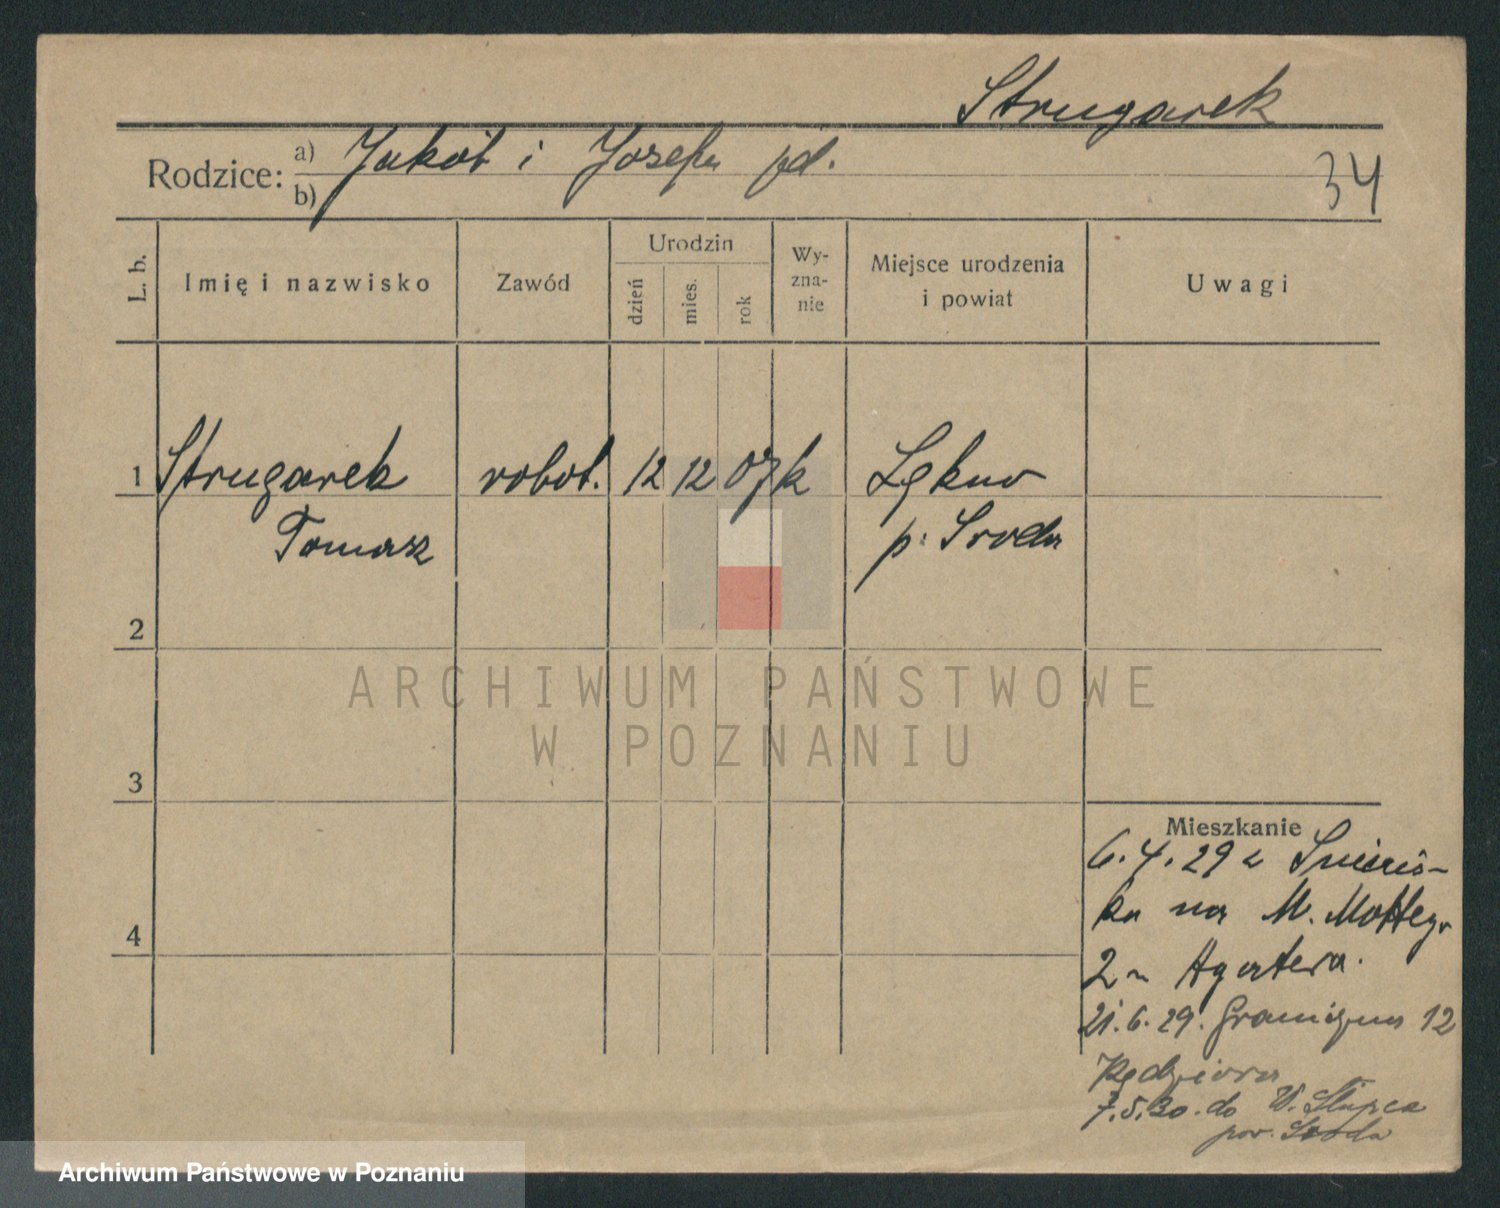 Strugarek
Rodzice: a) Jakób i Józefa pd.
b)
34
L. b.
Imię i nazwisko
Zawód
Urodzin
dzień
mies.
rok
Wy-
zna-
nie
Miejsce urodzenia
i powiat
Uwagi
1 Strugarek robot. 12 12 07 k Łękno
Tomasz p. Środa
2
ARCHIWUM PAŃSTWOWE
W POZNANIU
3
Mieszkanie
6.4.29 z
na M.
4
2
21.6.29. Graniczna 12
Kędziora
7.5.30. do W. Słupca
pow. Środa
Archiwum Państwowe w Poznaniu